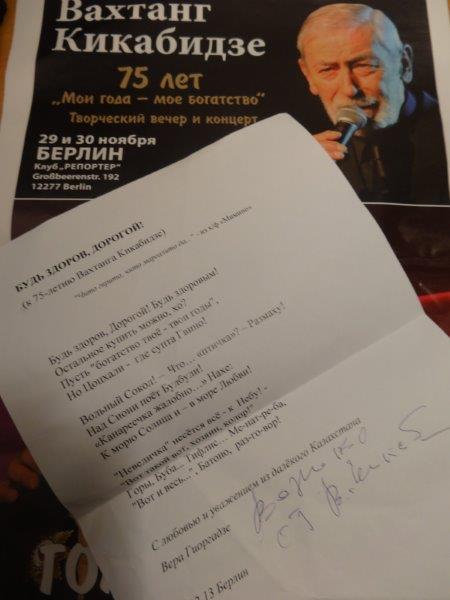 Вахтанг
Кикабидзе
75 лет
„Мои года – мое богатство“
Творческий вечер и концерт
29 и 30 ноября
БЕРЛИН
Клуб „РЕПОРТЕР“
Großbeerenstr. 192
12277 Berlin
БУДЬ ЗДОРОВ, ДОРОГОЙ!
(к 75-летию Вахтанга Кикабидзе)
из к/ф «Мимино»
Будь здоров, Дорогой! Будь здоровым!
Остальное купить можно, хо?
Пусть "богатство твоё - твои годы",
Но Цинхали - где супта Гвино!
Вольный Сокол! – Что… «птичка»? – Размаху!
Над Сиони поёт Булбули!
«Канареечка жалобно…» Нахе:
К морю Солнца и – в море Любви!
"Невеличка" несётся всё - к Небу! -
"Вот такой вот, хозяин, колор!"
Горы, Буба... Тифлис... Ме-нат-ре-ба,
"Вот и весь...", Батоно, раз-го-вор!
С любовью и уважением из далёкого Казахстана
Вера Гиоргадзе
13 Берлин